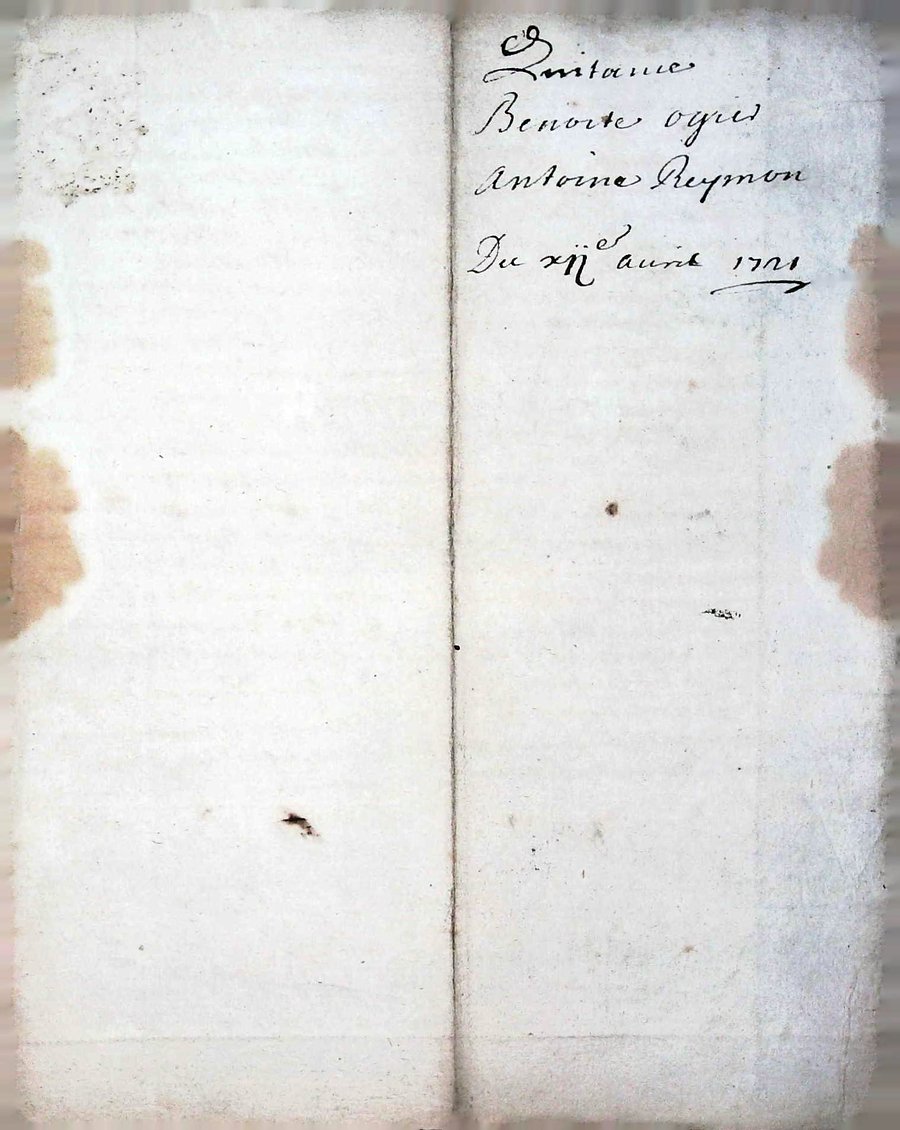 Quitance
Benoite ogier
Antoine Reymon
Du xije auril 1721